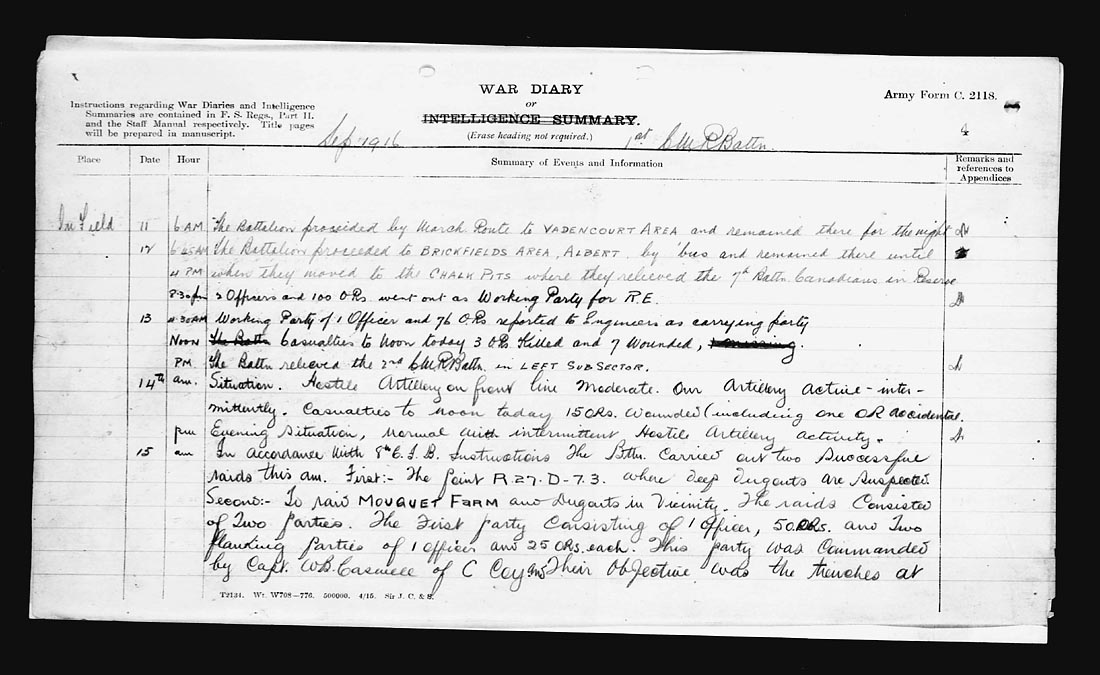 WAR DIARY
or
INTELLIGENCE SUMMARY.
(Erase heading not required.)
Army Form C. 2118.
Instructions regarding War Diaries and Intelligence
Summaries are contained in F. S. Regs., Part II.
and the Staff Manual respectively. Title pages
will be prepared in manuscript.
Sep 1916
1st CMR Battn.
4
Place Date Hour Summary of Events and Information Remarks and references to Appendices
In Field 11 6 AM The Battalion proceided by March Route to VADENCOURT AREA and remained there for the night
12 6.45AM The Battalion proceeded to BRICKFIELDS AREA, ALBERT. by 'bus and remained there until
4 PM when they moved to the CHALK PITS where they relieved the 7th Battn. Canadians in Reserve
8.30pm 2 Officers and 100 O.Rs. went out as Working Party for R.E.
13 4.30AM Working Party of 1 Officer and 76 O.Rs reported to Engineers as carrying party
NOON The Battn Casualties to Noon today 3 O.Rs. Killed and 7 Wounded, 1 missing.
PM. The Battn relieved the 2nd CMR Battn. in LEFT SUBSECTOR.
14th am. Situation. Hostile Artillery on front line Moderate. Our Artillery active - inter-
mittently. Casualties to noon today 15 ORs. Wounded (including one OR accidental.
pm Evening Situation, Normal with intermittent Hostile Artillery activity.
15 am In accordance with 8th C.I.B. Instructions The Bttn. Carried out two Successful
raids this am. First:- The point R.27.D-7.3. where deep Dugouts are Suspected.
Second:- To raid MOUQUET FARM and Dugouts in Vicinity. The raids Consisted
of Two parties. The First party Consisting of 1 Officer, 50 ORs. and Two
flanking Parties of 1 officer and 25 ORs. each. This party was Commanded
by Capt. W.B. Caswell of C Coy and Their Objective was the trenches at
T2134. Wt. W708—776. 500000. 4/15. Sir J. C. & S.